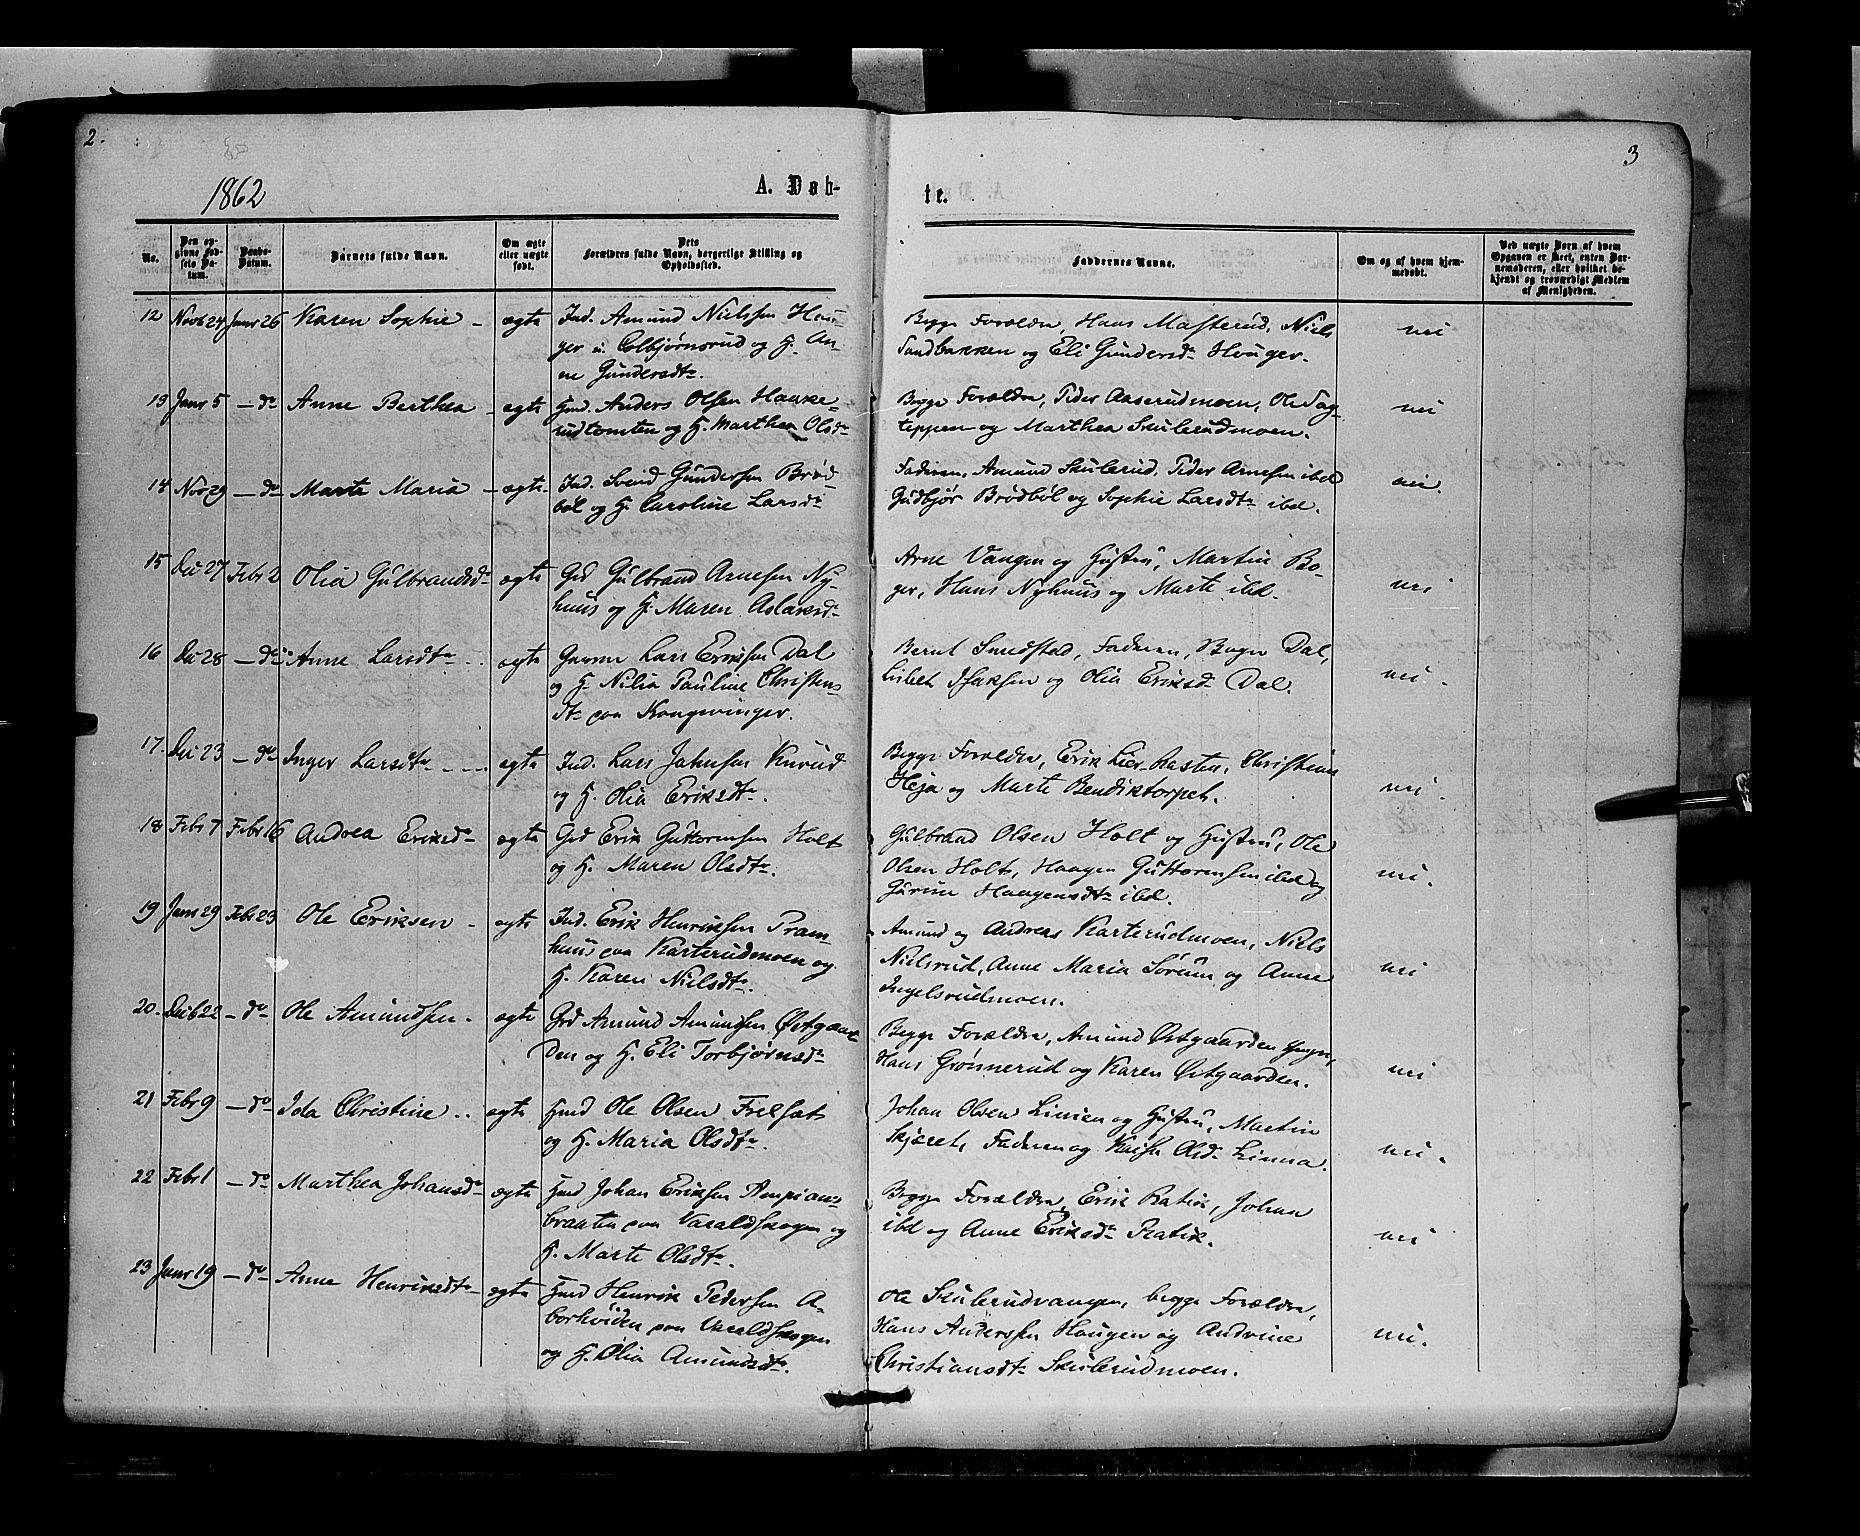 2.
3
1862
A. Døb-
te.
No.
Den opgivne Fødsels Datum.
Daabs-Datum.
Barnets fulde Navn.
Om ægte eller uægte født.
Dets Forældres fulde Navn, borgerlige Stilling og Opholdssted.
Faddernes Navne.
Om og af hvem hjemmedøbt.
Ved uægte Børn af hvem Opgaven er skeet, enten Barnemoderen, eller hvilket bekjendt og troværdigt Medlem af Menigheden.
12 Novb 24 Janr 26 Karen Sophie - ægte Ind. Amund Nielssen Hau-
ger u. Colbjørnsrud og H. An-
ne Gundersdtr.
Begge Forældre, Hans Masterud, Niels
Sandbakken og Eli Gundersdr Houger.
nei
13 Janr 5 - do Anne Berthea - ægte Hmd. Anders Olsen Haake-
rudtomten og H. Marthea Olsdr
Begge Forældre, Peder Aaserudmoen, Ole Tog-
teppen og Marthea Skulerudmoen.
nei
14 Nov 29 - do Marte Maria - ægte. Ind. Svend Gundersen Brød-
bøl og H. Caroline Larsdr
Faderen, Amund Skulerud, Peder Arnesen ibd
Gudbjør Brødbøl og Sophie Larsdtr ibd.
nei.
15 Dec 27 Febr 2 Olia Gulbrandsdr ægte Grd Gulbrand Arnesen Ny-
huus og H. Maren Aslaksdr
Arne Vangen og Hustru, Martin Bo-
ger, Hans Nyhuus og Marte ibd.
nei
16 Dec 28 - do Anne Larsdtr .. ægte Lars Eriksen Dal
og H. Nilia Pauline Christens-
dtr paa Kongsvinger.
Bernt Smedstad, Faderen, Dal,
Lisbet Isaksen og Olia Eriksdr Dal.
nei.
17. Dec 23 - do Inger Larsdtr ---- ægte Ind. Lars Jahnsen Knrud
og H. Olia Eriksdtr.
Begge Forældre, Erik Lier-Rasten, Christian
Heja og Marte Bendiktorpet.
nei.
18 Febr 7 Febr 16 Andrea Eriksdr ægte Grd Erik Guttormsen Holt
og H. Maren Olsdtr.
Gulbrand Olsen Holt og Hustru, Ole
Olsen Holt, Haagen Guttormsen ibd og
Gurine Haagensdtr ibd.
nei.
19 Janr 29 Febr 23 Ole Eriksen - ægte Ind. Erik Henriksen Pram-
huus paa Karterudmoen og
H. Karen Nielsdtr.
Amund og Andreas Karterudmoen, Niels
Nielsrud, Anne Maria Sørum og Anne
Ingelsrudmoen.
nei
20. Decb 22 - do Ole Amundsen. ægte Grd Amund Amundsen Østgaar-
den og H. Eli Torbjørnsdr
Begge Forældre, Amund Østgaarden yngre,
Hans Grønnerud og Karen Østgaarden.
nei
21 Febr 9 - do Ida Christine .. ægte Hmd Ole Olsen Frelsat
og H. Maria Olsdtr.
Johan Olsen Linnen og Hustru, Martin
Skjæret, Faderen og Kaisa Olsdr Linna.
nei.
22 Febr 1 - do Marthea Johansdr ægte Hmd Johan Eriksen
braaten paa Varaldskogen og
H. Marte Olsdtr.
Begge Forældre, Erik Ratik, Johan
ibd og Anne Eriksdr Ratik.
nei
23 Janr 19 - do Anne Henriksdtr ægte Hmd Henrik Pedersen A-
borhøiden paa Varaldskogen
og H. Olia Amundsdtr.
Ole Skulerudvangen, begge Forældre,
Hans Anderssen Haugen og Andrine
Christiansdtr Skulerudmoen.
nei.